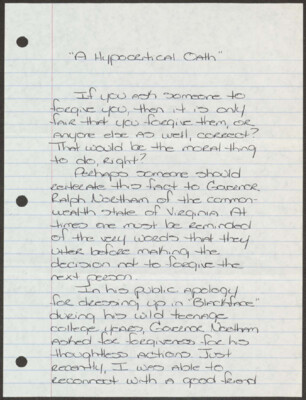 "A Hypocritical Oath"
If you ask someone to
forgive you, then it is only
fair that you forgive them, or
anyone else as well, correct?
That would be the moral thing
to do, right?
Perhaps someone should
reiterate this fact to Governor
Ralph Northam of the common-
wealth state of Virginia. At
times one must be reminded
of the very words that they
utter before making the
decision not to forgive the
next person.
In his public apology
for dressing up in "Blackface"
during his wild teenage
college years, Governor Northam
asked for forgiveness for his
thoughtless actions. Just
recently, I was able to
reconnect with a good friend